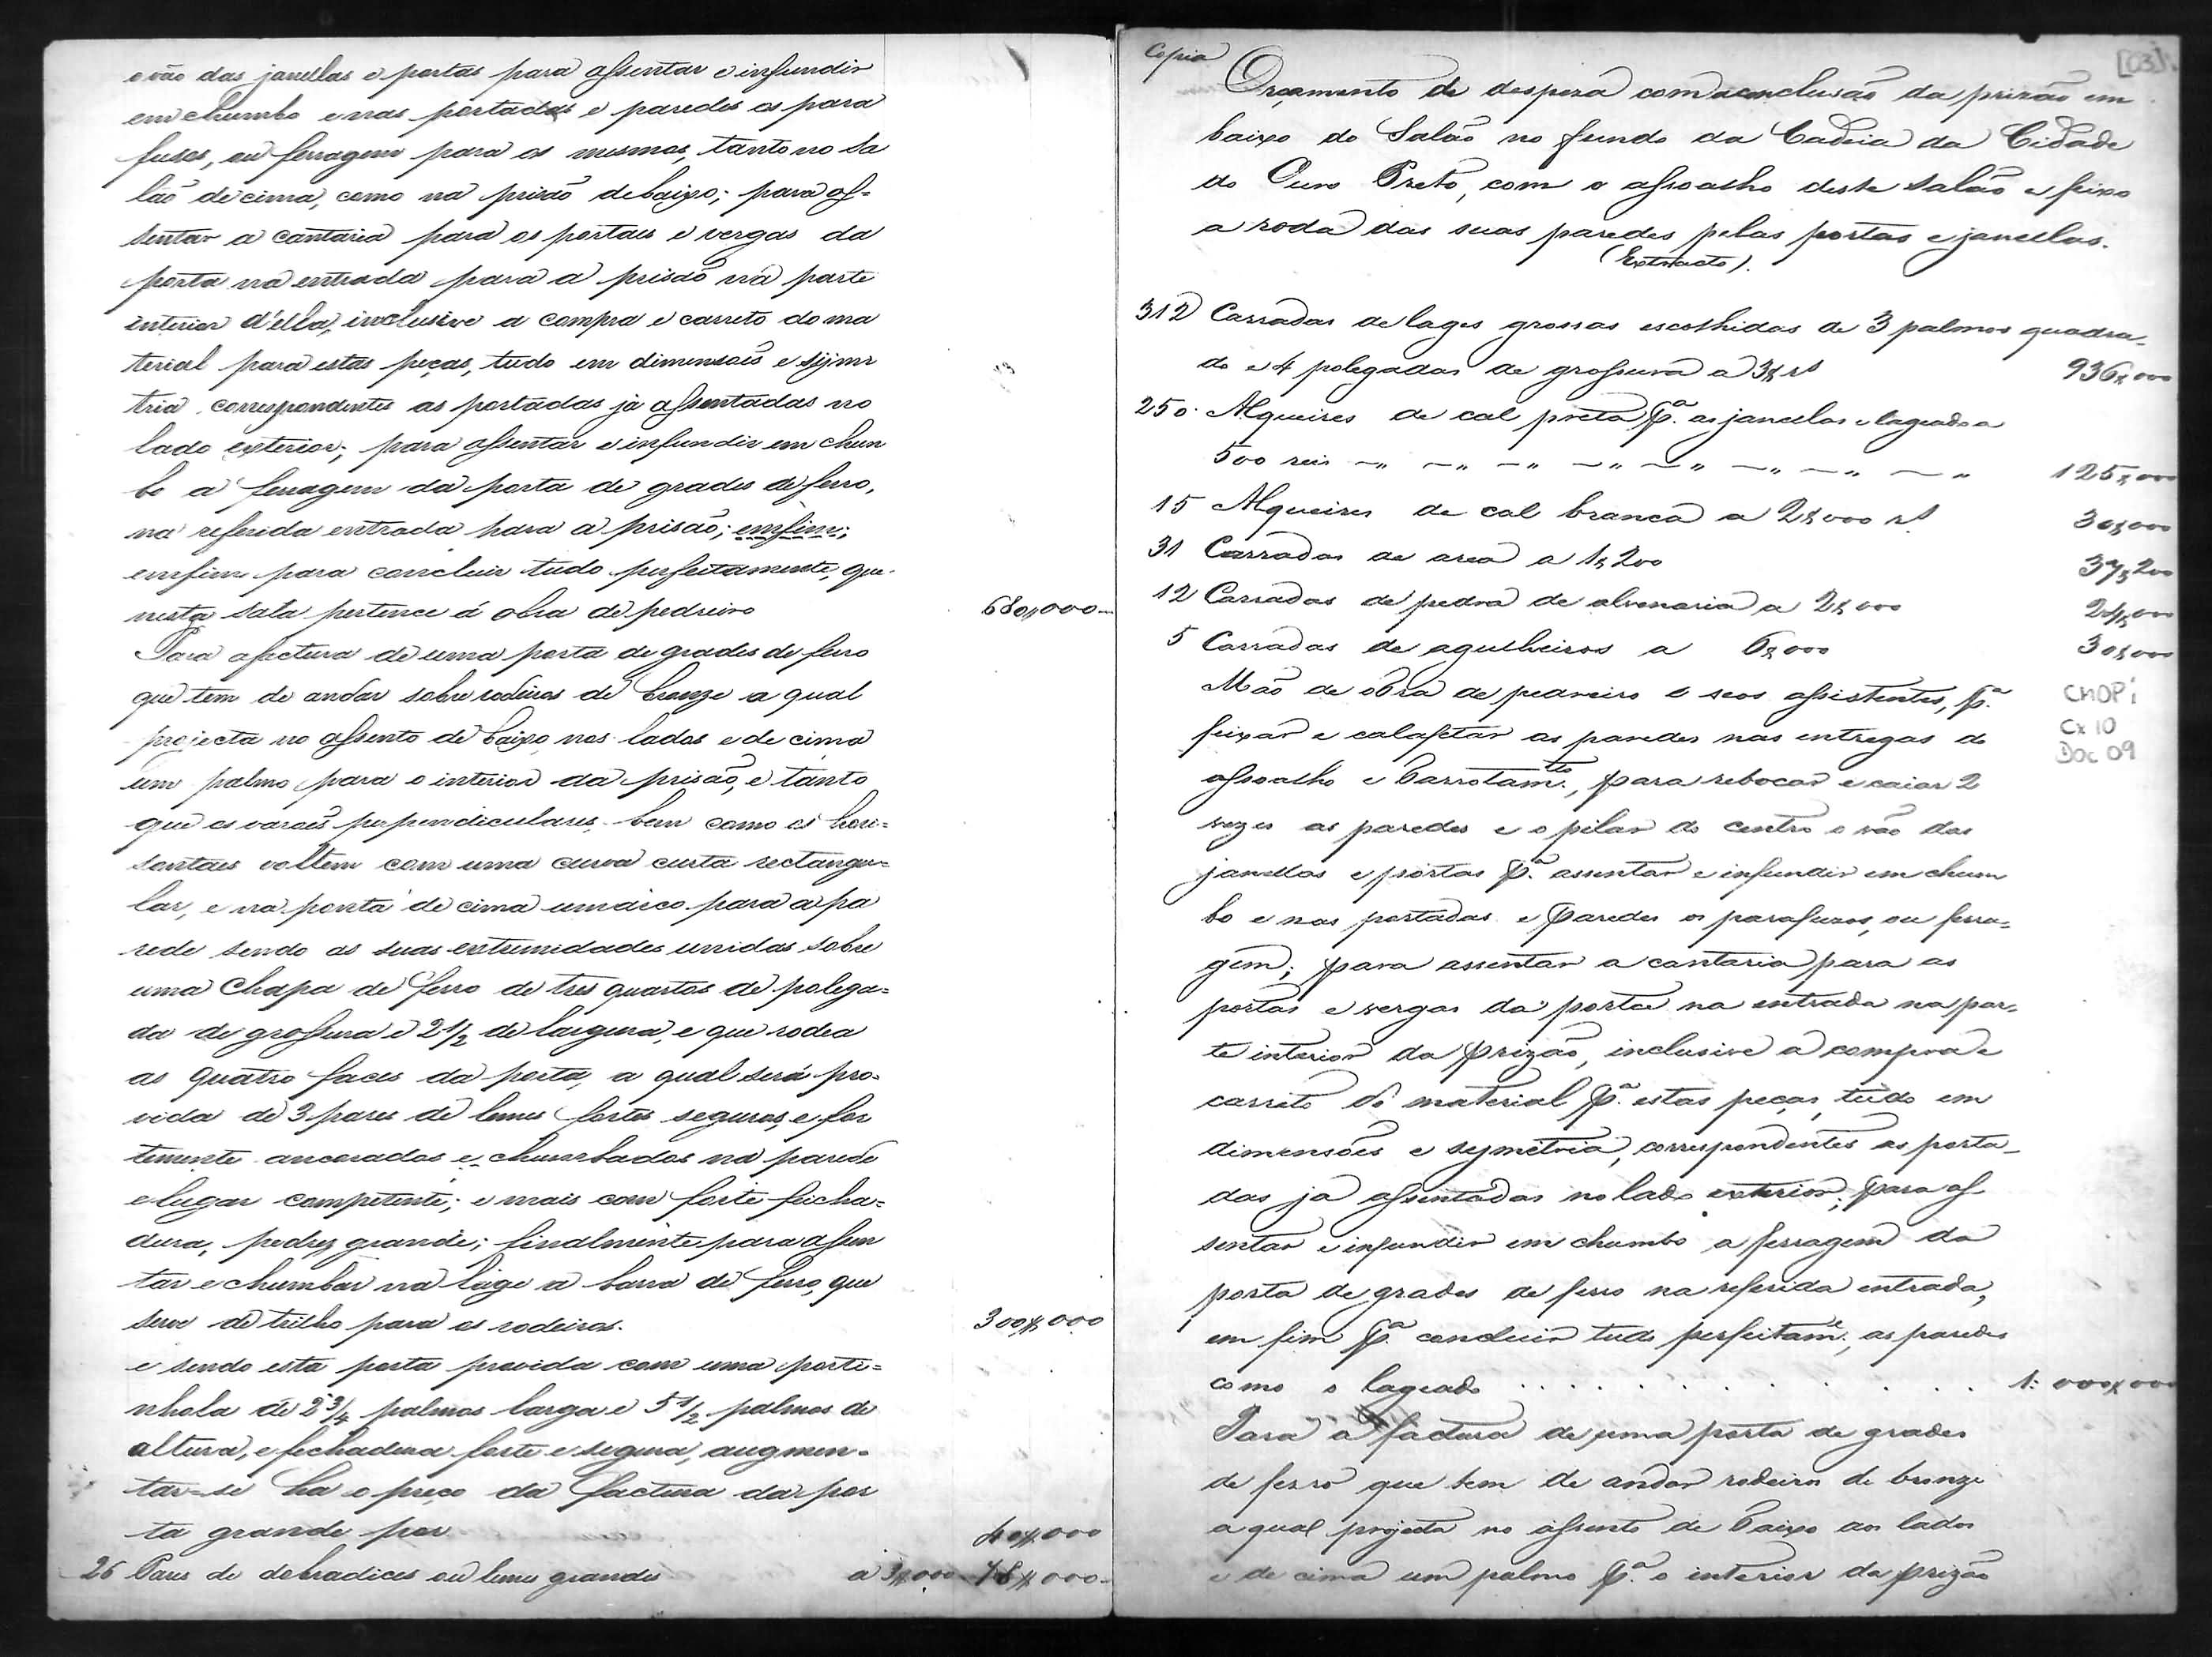 o vão das janellas e portas para assentar e infundir
em chumbo e nas portadas e paredes os para
fusos, ou ferragem para os mesmos, tanto no Sa
lão de cima, como na prisão debaixo; para as=
sentar a cantaria para os portaes e vergas da
porta na entrada para a prisão na parte
interior d'ella, inclusive a compra e carreto do ma
terial para estas peças, tudo em dimensoẽs e symi
tria correspondentes as portadas já assentadas no
lado exterior; para assentar e infundir em chum
bo a ferragem da porta de grades de ferro,
na referida entrada para a prisão; emfim;
emfim para concluir tudo perfeitamente, que
nesta sala pertence á obra de pedreiro 680$000
Para afactura de uma porta de grades de ferro
que tem de andar sobre rodeiros de bronze a qual
projecta no assento de baixo nos lados e de cima
um palmo para o interior da prisão, e tanto
que os varoẽs perpendiculares bem como os hori=
sontaes voltem com uma curva curta rectangu=
lar, e na ponta de cima um arco para a pa
rede sendo as suas extremidades unidas sobre
uma Chapa de ferro de tres quartos de polega=
da de grossura e 2 1/2 de largura, e que rodea
as quatro faces da porta, a qual será pro=
vida de 3 pares de lemes fortes seguros, e for
temente ancorados e chumbados na parede
e lugar competente; e mais com forte feicha=
dura, pedrez grande; finalmente para assen
tar e chumbar na lage a barra de ferro, que
serve de trilho para os rodeiros. 300$000
e sendo esta porta provida com uma porti=
nhola de 2 3/4 palmos larga e 5 1/2 palmos de
altura, e fechadura forte e segura, augmen=
tar-se ha o preço da factura da por
ta grande por 40$000
26 Pares de dobradices ou lemes grandes a 3$000 78$000
Copia
[03]
Orçamento de despeza com a conclusão da prizão em
baixo do Salão no fundo da Cadeia da Cidade
do Ouro Preto, com o assoalho deste salão e feixo
a roda das suas paredes pelas portas e janellas.
(Extracto).
312 Carradas de lages grossas escolhidas de 3 palmos quadra-
do e 4 polegadas de grossura a 3$ rs 936$000
250 Alqueires de cal preta p.ª as janellas e lageado a
500 reis 125$000
15 Alqueires de cal branca a 2$000 rs 30$000
31 Carradas de area a 1$200 37$200
12 Carradas de pedra de alvenaria a 2$000 24$000
5 Carradas de agulheiros a 6$000 30$000
Mão de obra de pedreiro e seos assistentes, p.ª
feixar e calafetar as paredes nas entregas do
assoalho e barrotam.to, para rebocar e caiar 2
vezes as paredes e o pilar do centro o vão das
janellas e portas p.ª assentar e infundir em chum
bo e nas portadas e paredes os parafuzos, ou ferra=
gem; para assentar a cantaria para as
portas e vergas da porta na entrada na par-
te interior da prizão, inclusive a compra e
carreto do material p.ª estas peças, tudo em
dimensões e symetria, correspondentes as porta-
das já assentadas no lado exterior; para as-
sentar e infundir em chumbo a ferragem da
porta de grades de ferro na referida entrada,
em fim p.ª concluir tudo perfeitam.e, as paredes
como o lageado . . . . . . . . . . 1:000$000
Para a factura de uma porta de grades
de ferro que tem de andar rodeiros de bronze
a qual projecta no assento de baixo aos lados
e de cima um palmo p.ª o interior da prizão
CMOPi
Cx 10
Doc 09